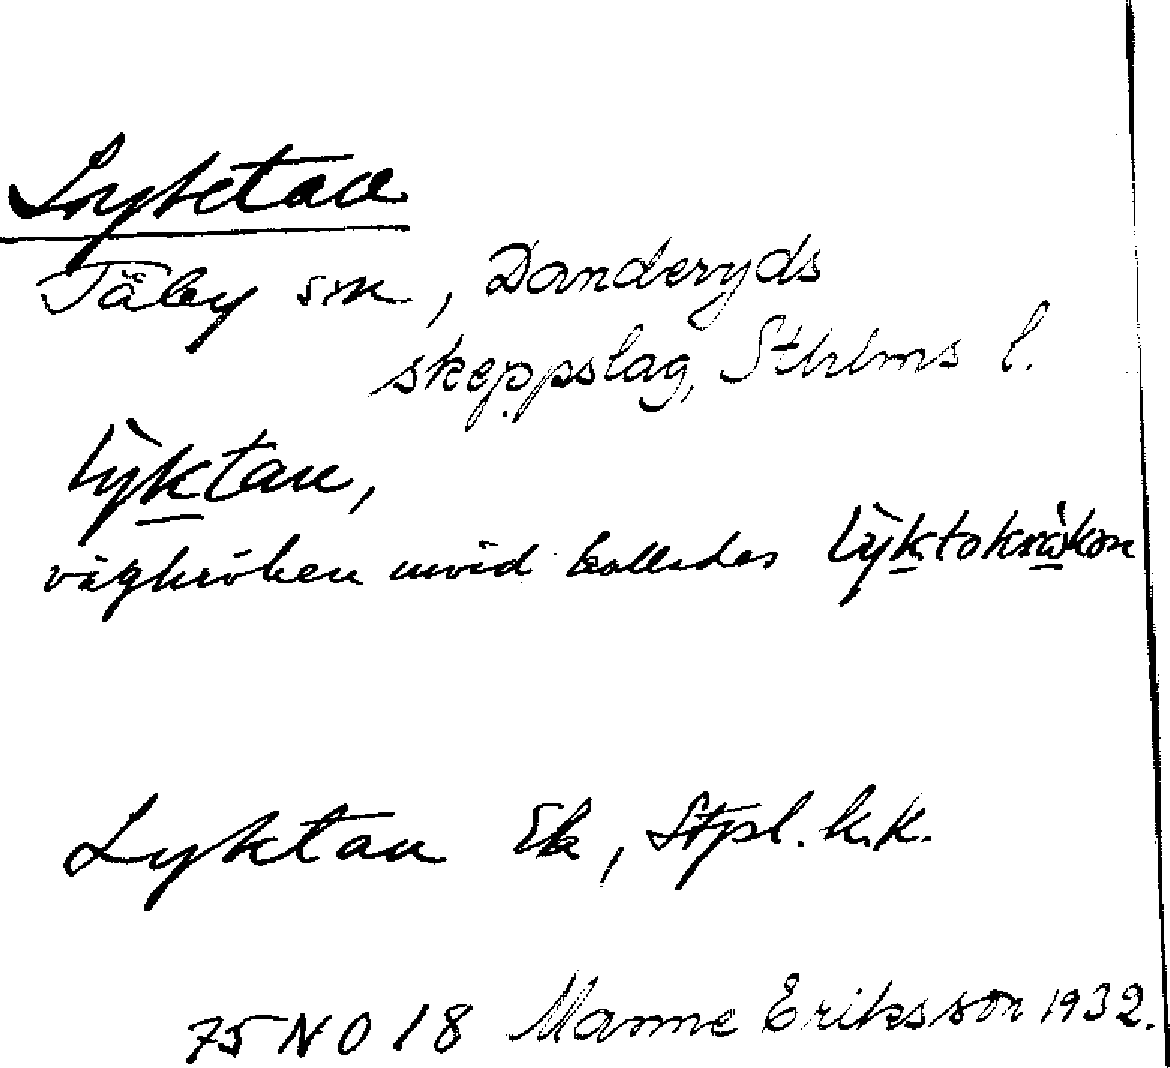 Lyktan
Täby sn, Danderyds
skeppslag, Sthlms l.
Lỳktan,
vägkröken invid kallades Lỳktokrö̀kən
Lyktan Ek, Stpl. h.k.
75 NO 18 Manne Eriksson 1932.